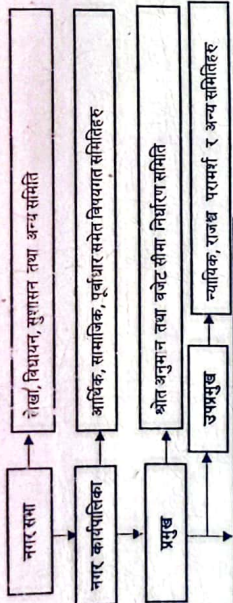 नगर सभा
लेखा, विधायन, सुशासन तथा अन्य समिति
नगर कार्यपालिका
आर्थिक, सामाजिक, पूर्वाधार समेत विषयगत समितिहरु
प्रमुख
श्रोत अनुमान तथा बजेट सीमा निर्धारण समिति
उपप्रमुख
न्यायिक, राजश्व परामर्श र अन्य समितिहरु